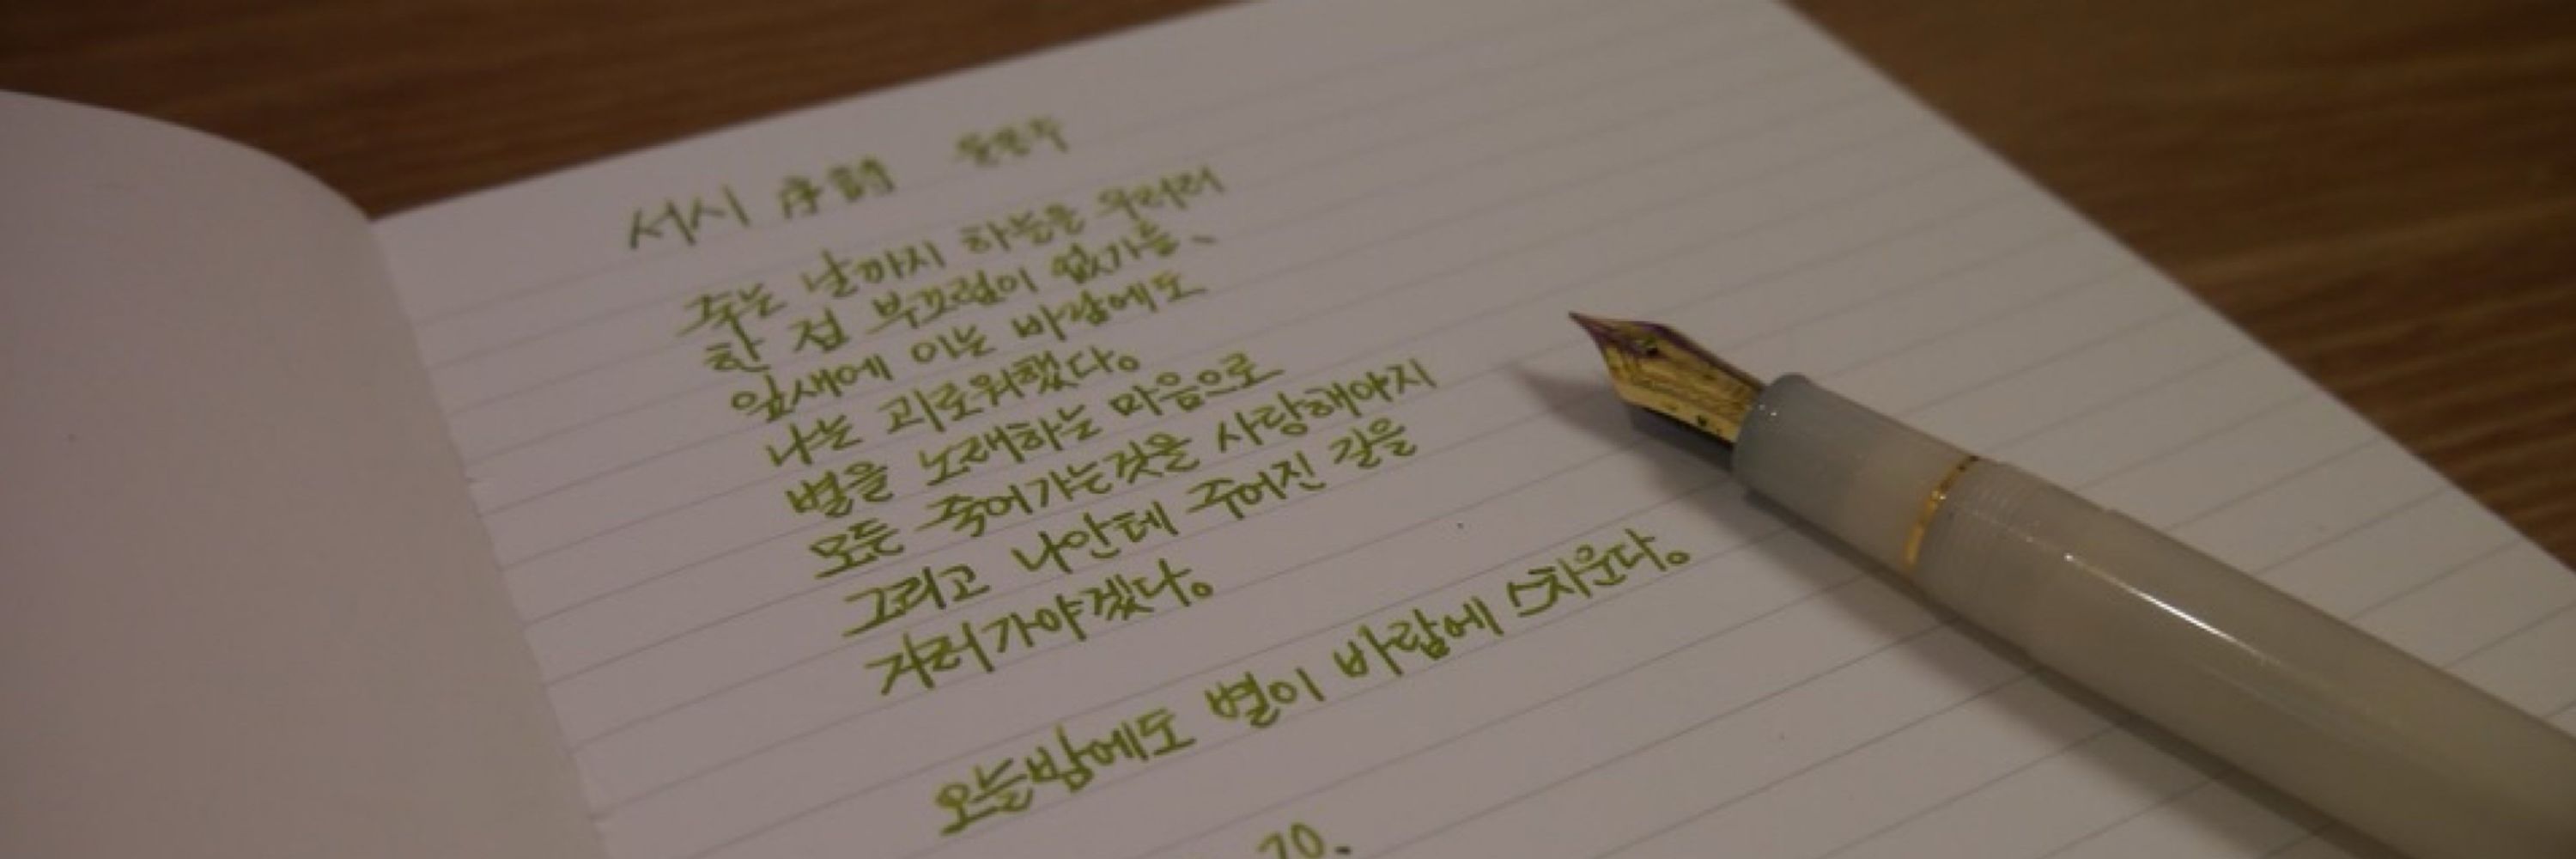 서시 序詩 윤동주
죽는 날까지 하늘을 우러러
한 점 부끄럼이 없기를、
잎새에 이는 바람에도
나는 괴로워했다。
별을 노래하는 마음으로
모든 죽어가는것을 사랑해야지
그리고 나안테 주어진 길을
거러가야겠다。
오늘밤에도 별이 바람에 스치운다。
20.